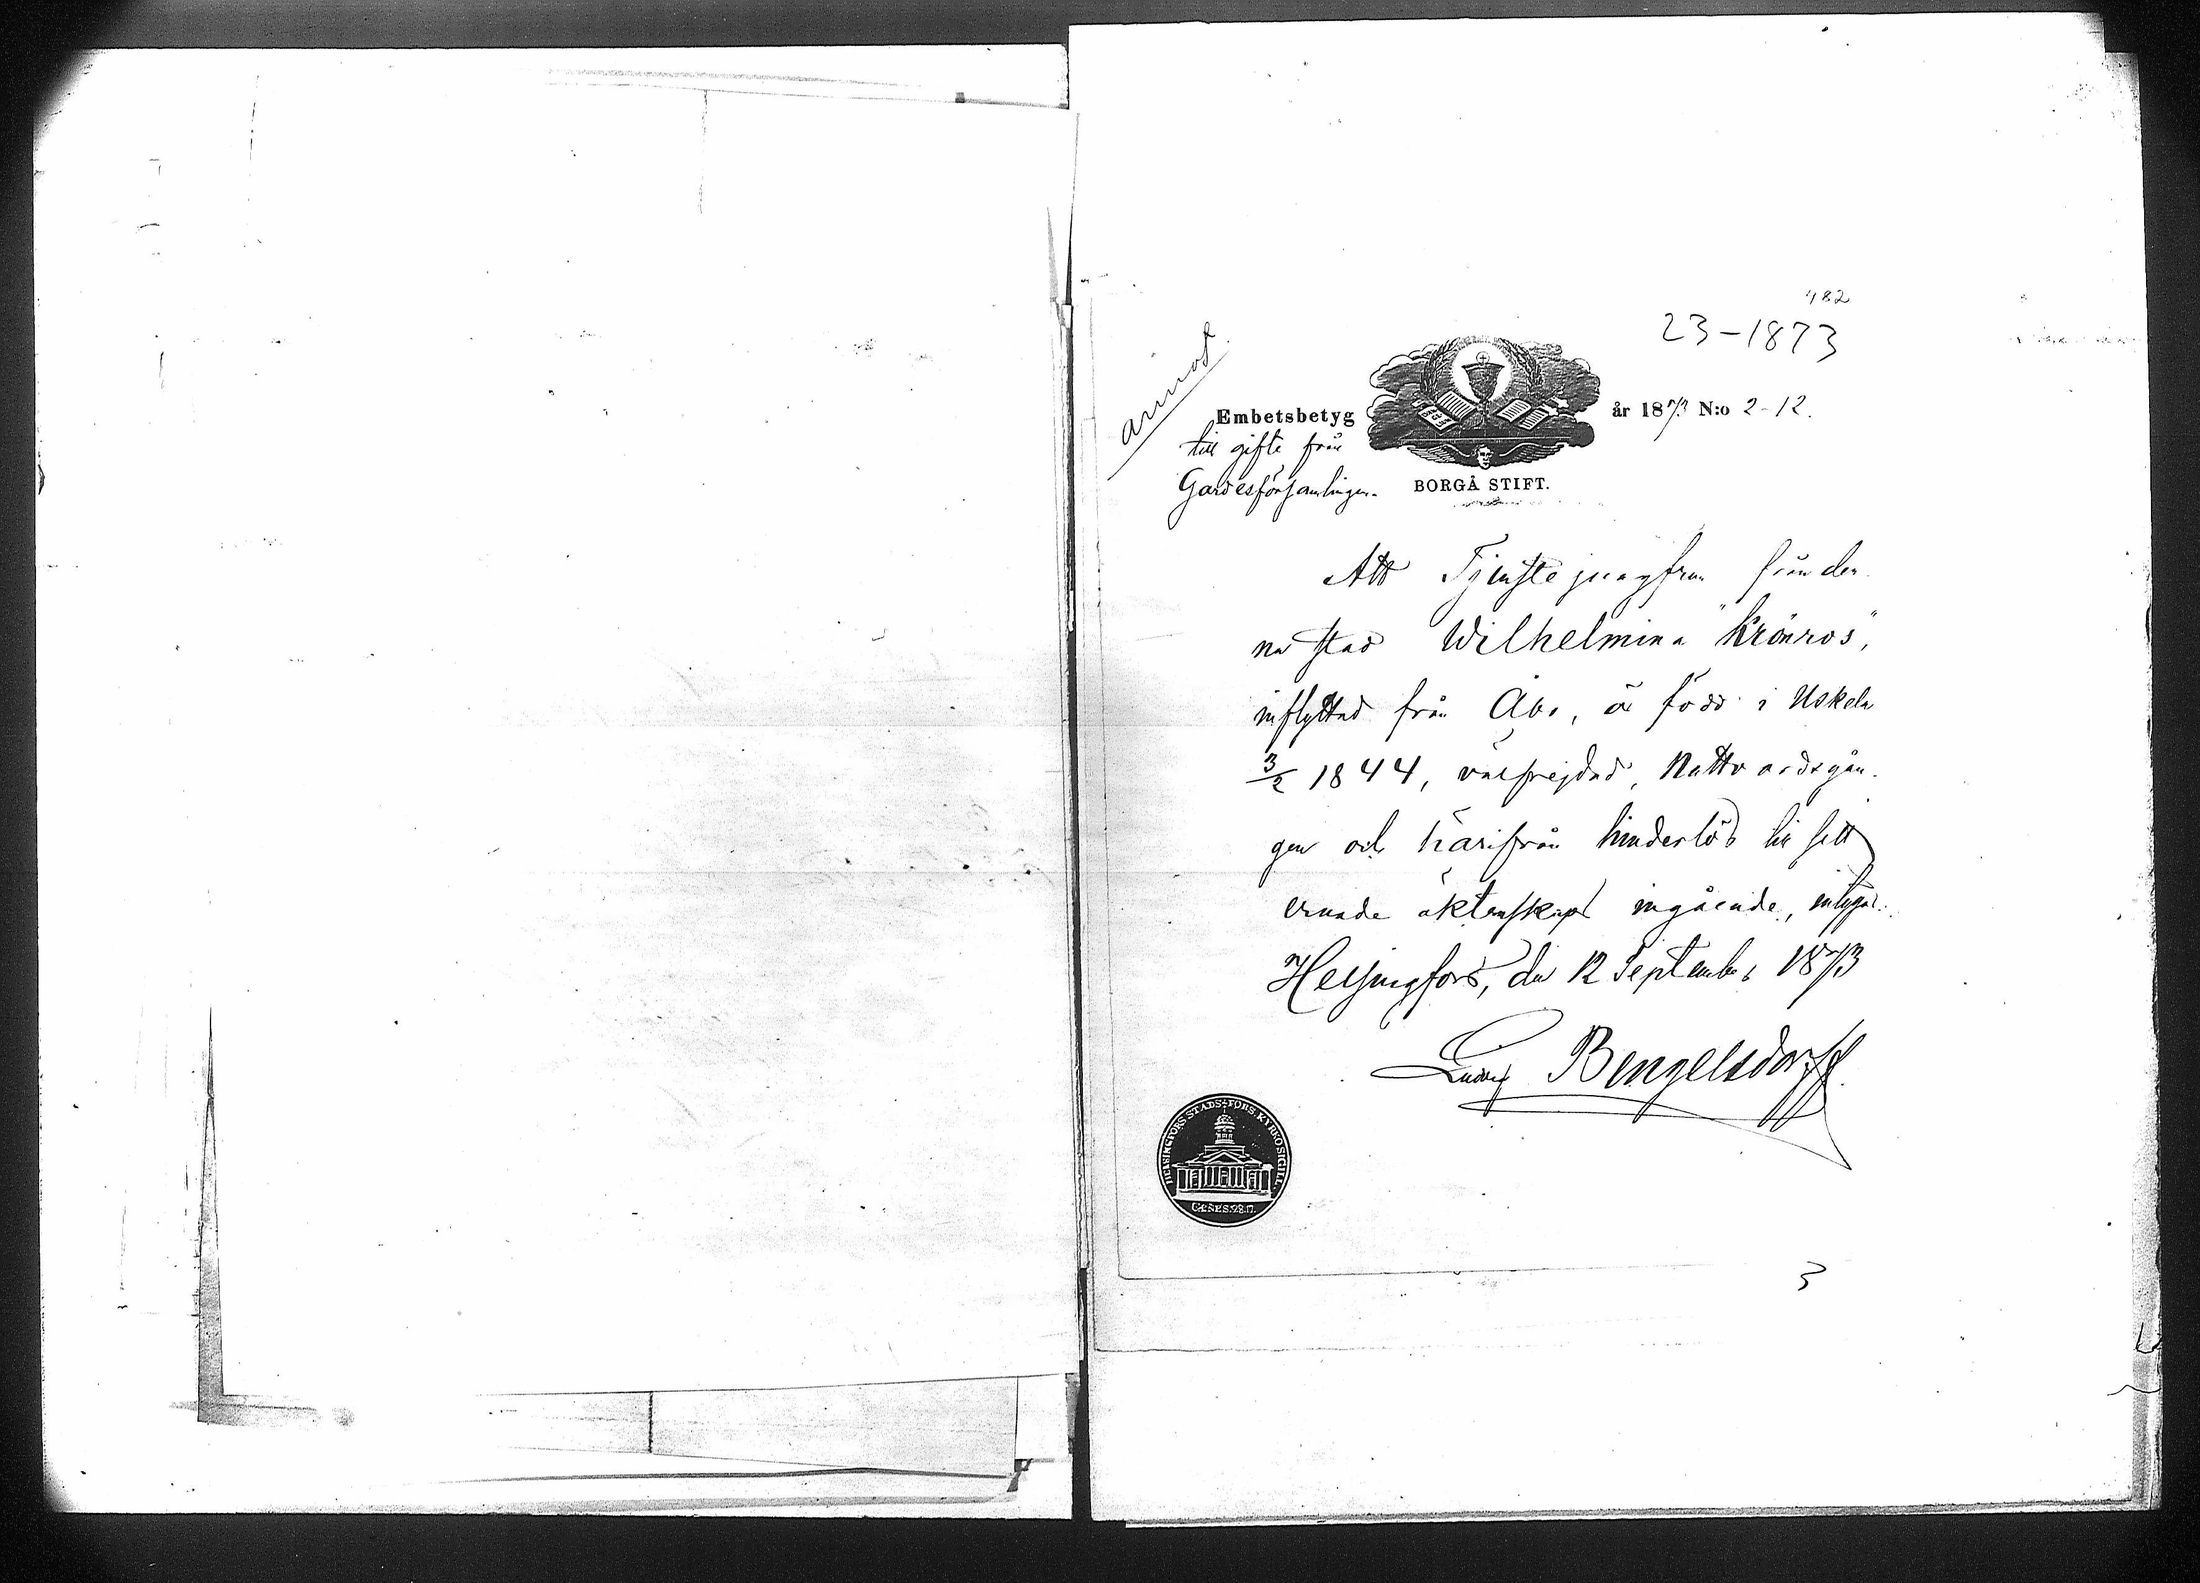 482
23-1873
annot.
Embetsbetyg
år 1873 N:o 2-12.
till gifte från
Gardesförsamlingen.
BORGÅ STIFT.
Att Tjenstejungfrun från den
na stad Wilhelmina "Krönros",
inflyttad från Åbo, är född i Uskela
3/2 1844, välfrejdad, Nattvardsgån
gen och härifrån hinderlös till sitt
ernade äktenskaps ingående, intygar.
Helsingfors, den 12 September 1873
Ludvig Bengelsdorff.
HELSINGFORS STADS-FÖRS. KYRKOSIGILL.
GENES. 28.17.
3